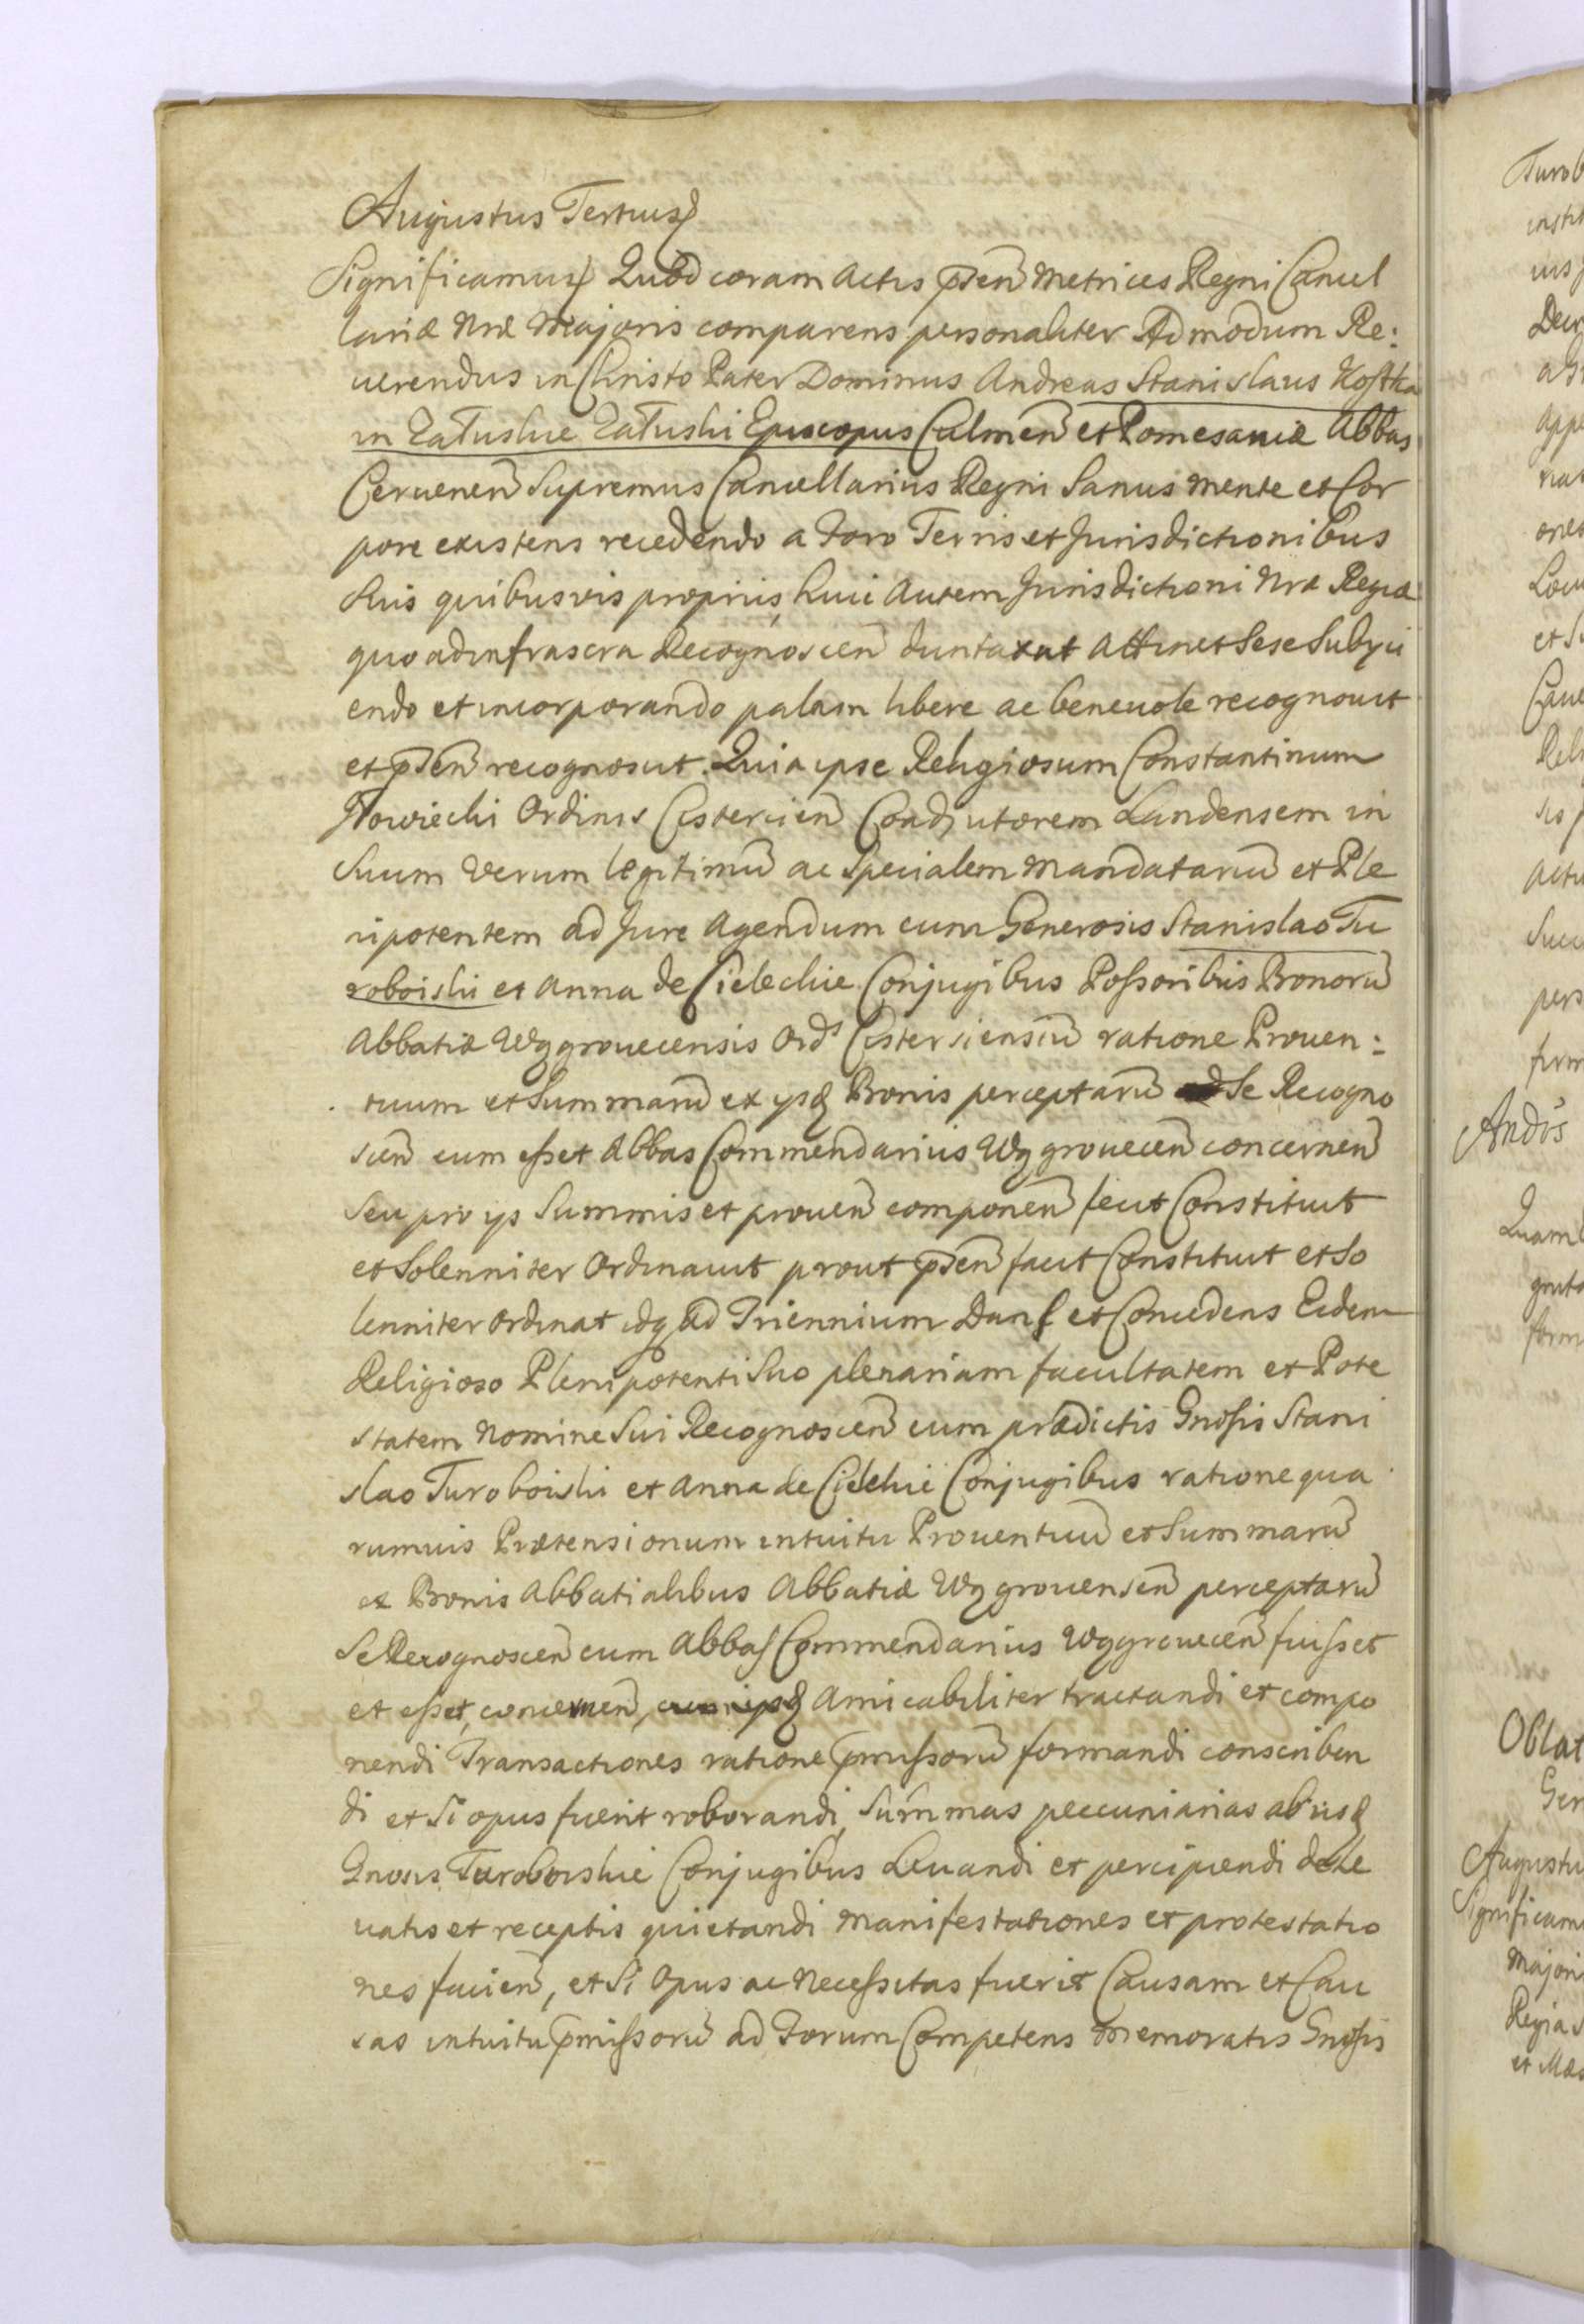 Augustus Tertius
Significamus Quod coram Actis pñsen Metrices Regni Cancel
lariæ Nræ Majoris comparens personaliter Admodum Re:
uerendus in Christo Pater Dominus Andreas Stanislaus Kostka
in Załuskie Załuski Episcopus Culmeñ et Pomesaniæ Abbas
Ceruenen Supremus Cancellarius Regni Sanus mente et Cor
pore existens recedendo a Foro Terris et Jurisdictionibus
Suis quibusvis proprijs, huic Autem Jurisdictioni Nræ Regiæ
quo ad infrascra Recognoscen duntaxat Attinet Sese Subyci
endo et incorporando palam libere ac beneuole recognouit
et pñsen recognoscit. Quia ipse Religiosum Constantinum
Iłowiecki Ordinis Cistercien Coadjutorem Landensem in
Suum Verum legitimũ ac Specialem Mandatariũ et Ple
nipotentem ad Jure Agendum cum Generosis Stanislao Tu
roboiski et Anna de Cielechie Conjugibus Possoribus Bonorũ
Abbatiæ Wągrouecensis Ords Cisterciensiũ ratione Prouen:
tuum et Summarũ ex ysq Bonis perceptarũ Se Recogno
scen cum esset Abbas Commendarius Wągrouecen concernen
Seu pro ys Summis et prouen componen fecit Constituit
et Solenniter Ordinauit prout pñsen facit Constituit et So
lenniter Ordinat idq ad Triennium Dans et Concedens Eidem
Religioso Plenipotenti Suo plenariam facultatem et Pote
statem Nomine Sui Recognoscen cum prædictis Gnosis Stani
slao Turoboiski et Anna de Cielechie Conjugibus ratione qua
rumuis Prætensionum intuitu Prouentuũ et Summarũ
ex Bonis Abbatialibus Abbatiæ Wągrouensen perceptarũ
Se Recognoscen cum Abbas Commendarius Wągrouecen fuisset
et esset, concernen, amicabiliter tractandi et compo
nendi Transactiones ratione pmissorũ formandi conscriben
di et Si opus fuerit roborandi, Summas peccuniarias ab iisq
Gnosis Turoboiskie Conjugibus Leuandi et percipiendi de le
uatis et receptis quietandi Manifestationes et protestatio
nes facien, et Si Opus ac Necessitas fuerit Causam et Cau
sas intuitu pmissorũ ad Forum Competens memoratis Gnosis
Turob
instit
Deer
et Su
Actu
Succ
pers
firm
Andis
Quam
form
Oblat
Gen
Augustu
Significam
Majori
Regia